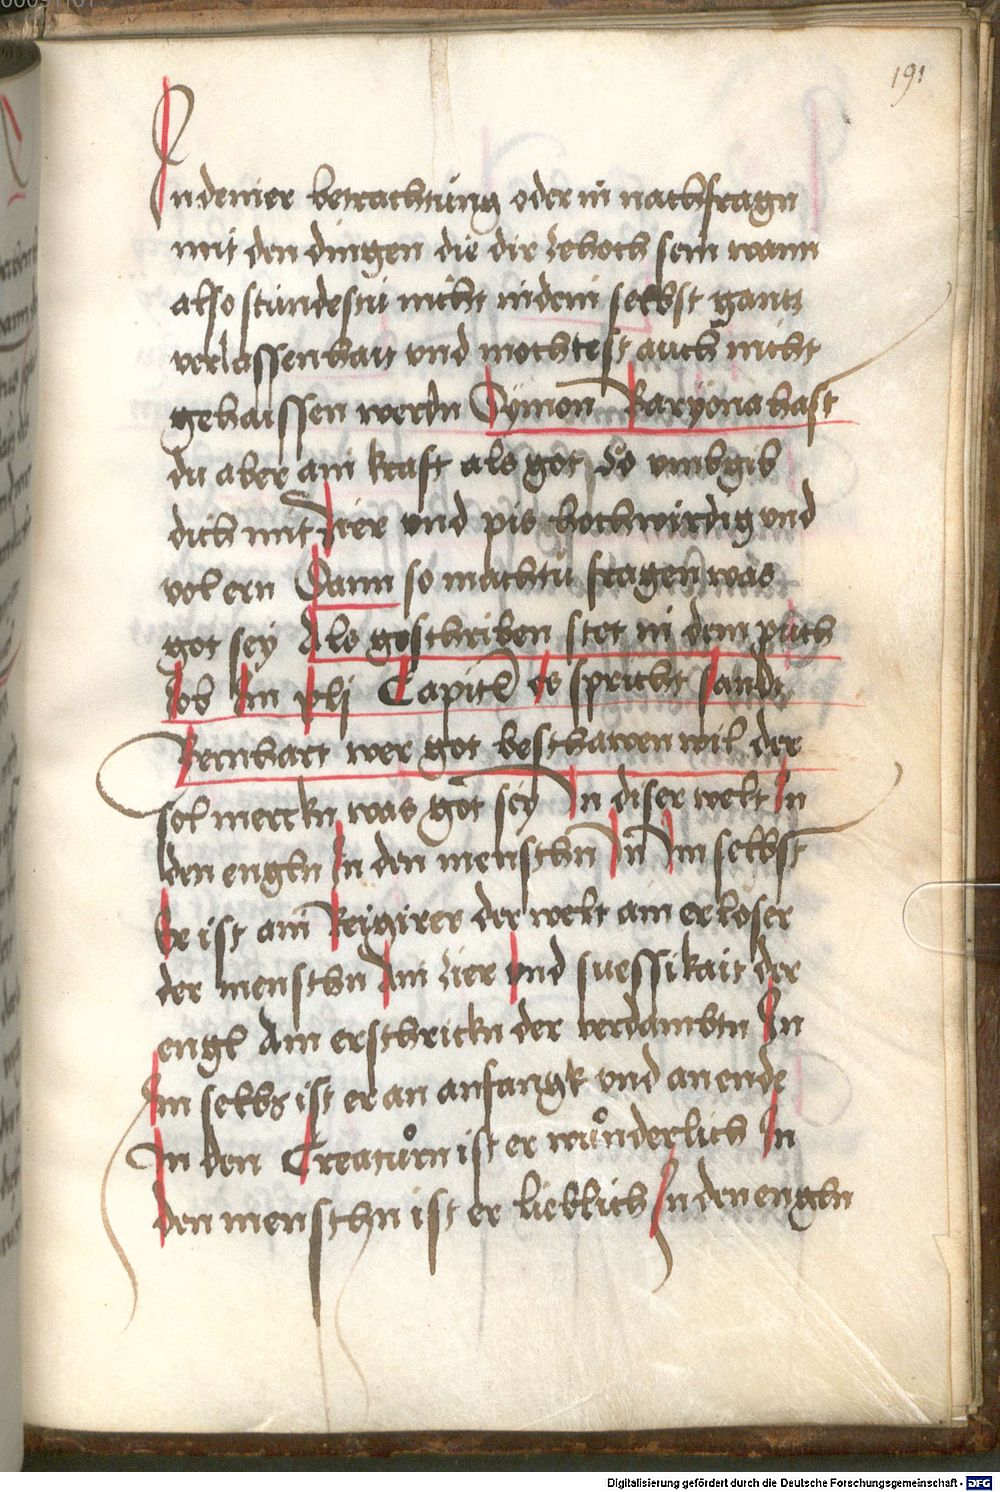 191
In deiner betrachtung oder in nachfragn
mit den dingen die dir zehoch sein wann
also stundestu nicht in dein selbst gantz
verlassenhait und mochtest auch nicht
gehaissen werdn Symon Baryona hast
du aber ain kraft als got so umbgib
dich mit Zier und pis hochwirdig und
vol ern Dann so machtu fragen was
got sey Als geschriben stet in dem puch
Job Im xlj Capitl es spricht Sandt
Bernhart wer got beschawen wil der
sol merckn was got sey In diser welt In
den engln In den menschn In Im selbst
Er ist ain Regirer der welt ain erloser
der menschn Ain zier und suessikait der
engl Ain erschrickn der verdambtn In
Im selbs ist er an anfangk und an ende
In den Creaturn ist er wunderlich In
den menschn ist er lieblich In den engln
Digitalisierung gefördert durch die Deutsche Forschungsgemeinschaft - DFG